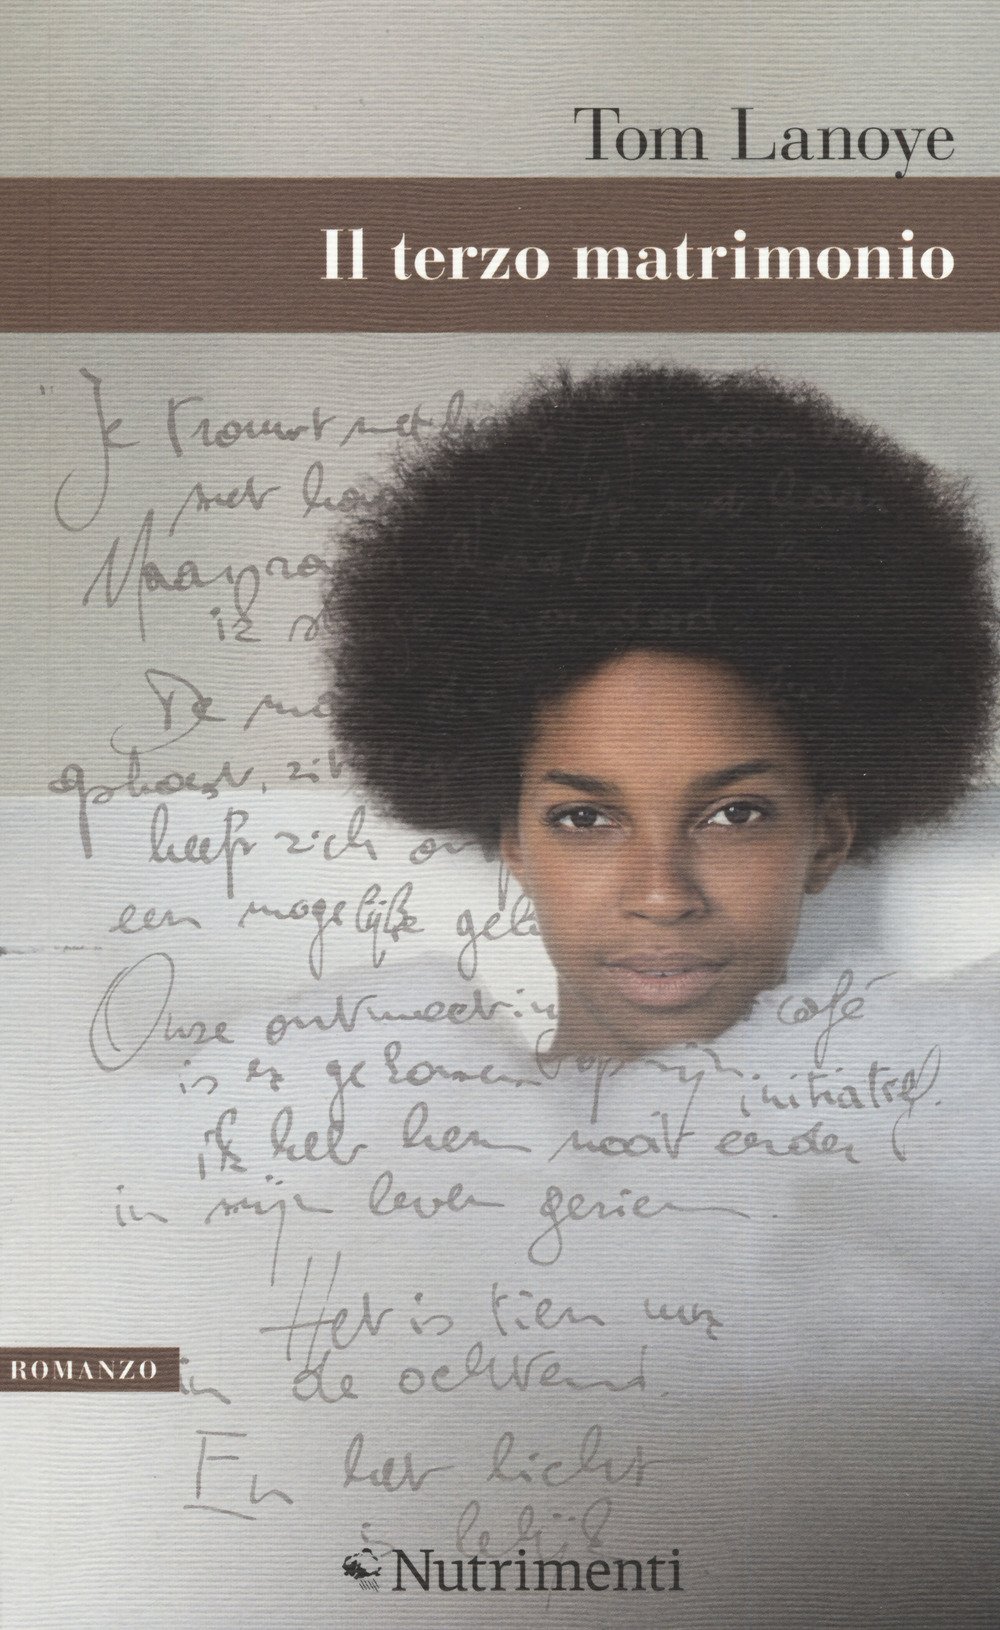 Tom Lanoye
Il terzo matrimonio
"Je trouwt met haar, je woont
met haar, je slaapt met haar.
Maar
ik
De
ophoest, zit
heeft zich
een mogelijke
Onze ontmoeting café
is er gekomen op zijn initiatief.
ik heb hem nooit eerder
in mijn leven gezien.
Het is tien uur
in de ochtend.
En het licht
is lelijk
ROMANZO
Nutrimenti